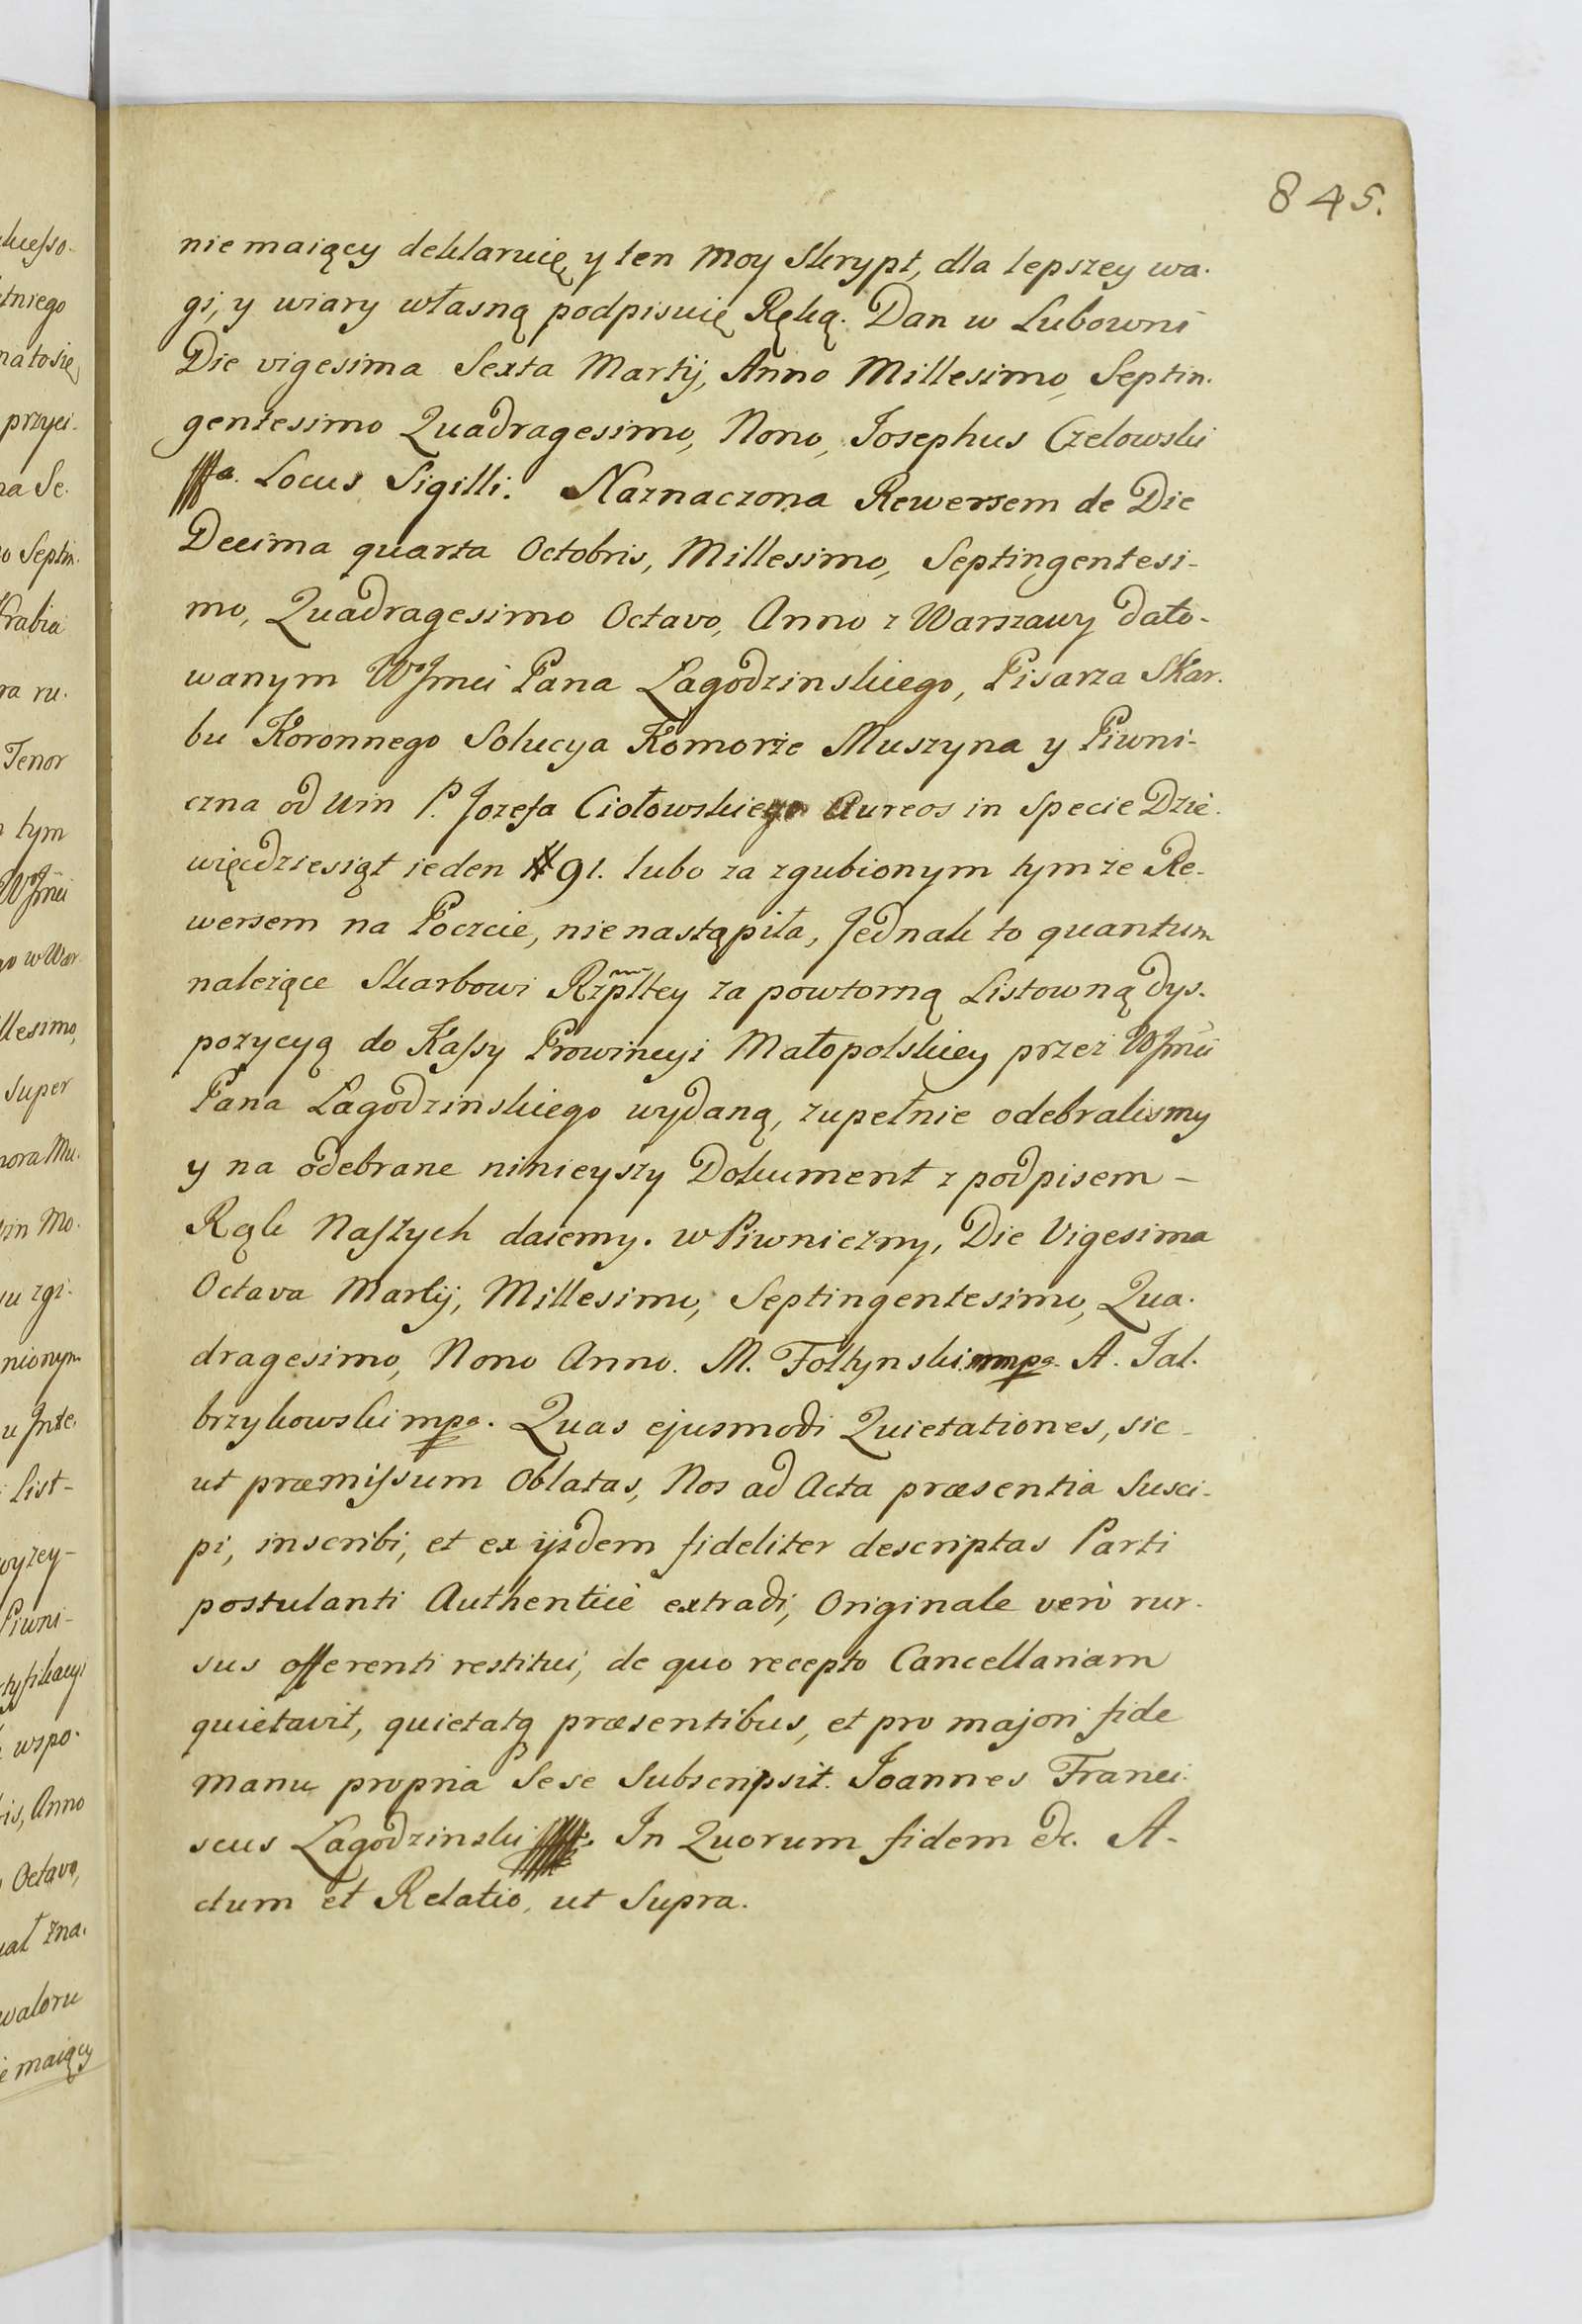 845.
nie maiący deklaruię, y ten moy Skrypt, dla lepszey wa-
gi, y wiary własną podpisuię Ręką. Dan w Lubowni
Die vigesima Sexta Martij, Anno Millesimo, Septin-
gentesimo Quadragesimo, Nono, Josephus Czelowski
Locus Sigilli. Naznaczona Rewersem de Die
Decima quarta Octobris, Millessimo, Septingentesi-
mo, Quadragesimo Octavo, Anno z Warszawy dato-
wanym WJmci Pana Łagodzinskiego, Pisarza Skar-
bu Koronnego Solucya Komorze Muszyna y Piwni-
czna od Uin P. Jozefa Ciołowskiego Aureos in Specie Dzie-
więcdziesiąt ieden # 91. lubo za zgubionym tymze Re-
wersem na Poczcie, nie nastąpiła, Jednak to quantum
nalezące Skarbowi Rzpltey za powtorną Listowną dys-
pozycyą do Kassy Prowincyi Małopolskiey przez WJmci
Pana Łagodzinskiego wydaną, zupełnie odebralismy
y na odebrane ninieyszy Dokument z podpisem -
Rąk Naszych daiemy. w Piwniczny, Die Vigesima
Octava Martij, Millesimo, Septingentesimo, Qua-
dragesimo, Nono Anno. M. Foltynski mpa. A. Jal-
brzykowski mpa. Quas ejusmodi Quietationes, sic-
ut præmissum Oblatas, Nos ad Acta præsentia Susci-
pi, inscribi, et ex ijsdem fideliter descriptas Parti
postulanti Authenticè extradi, Originale verò rur-
sus offerenti restitui, de quo recepto Cancellariam
quietavit, quietatq præsentibus, et pro majori fide
manu propria Sese Subscripsit. Joannes Franci-
scus Łagodzinski. In Quorum fidem &c. A-
ctum et Relatio, ut Supra.